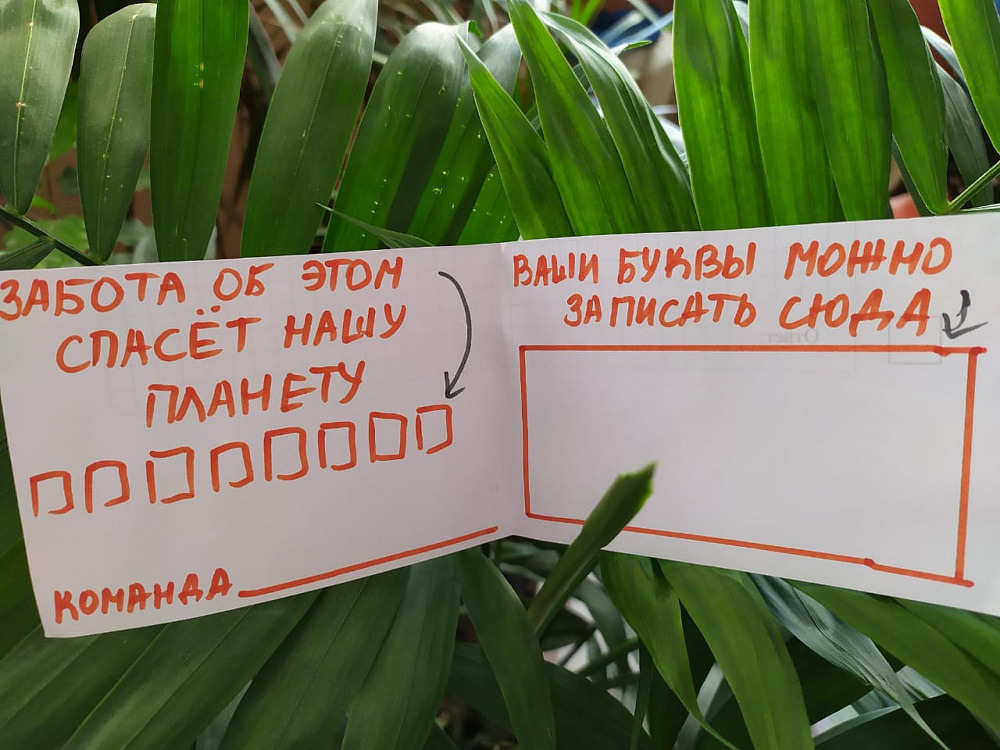 ЗАБОТА ОБ ЭТОМ
СПАСЁТ НАШУ
ПЛАНЕТУ
КОМАНДА
ВАШИ БУКВЫ МОЖНО
ЗАПИСАТЬ СЮДА
Ответ: